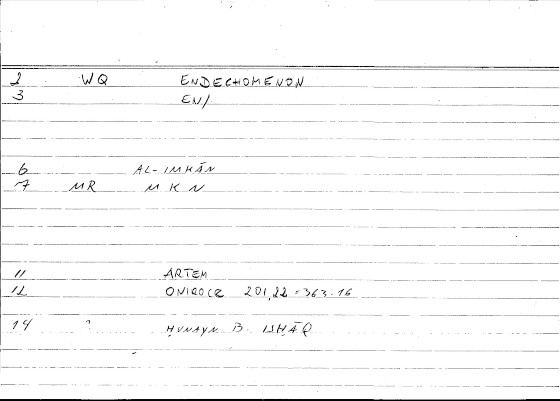 2 WQ ENDECHOMENON
3 EN/
6 AL-IMKĀN
7 MR M K N
11 ARTEM
12 ONIROCR 201,22 = 363.16
14 ? ḤUNAYN B ISḤĀQ